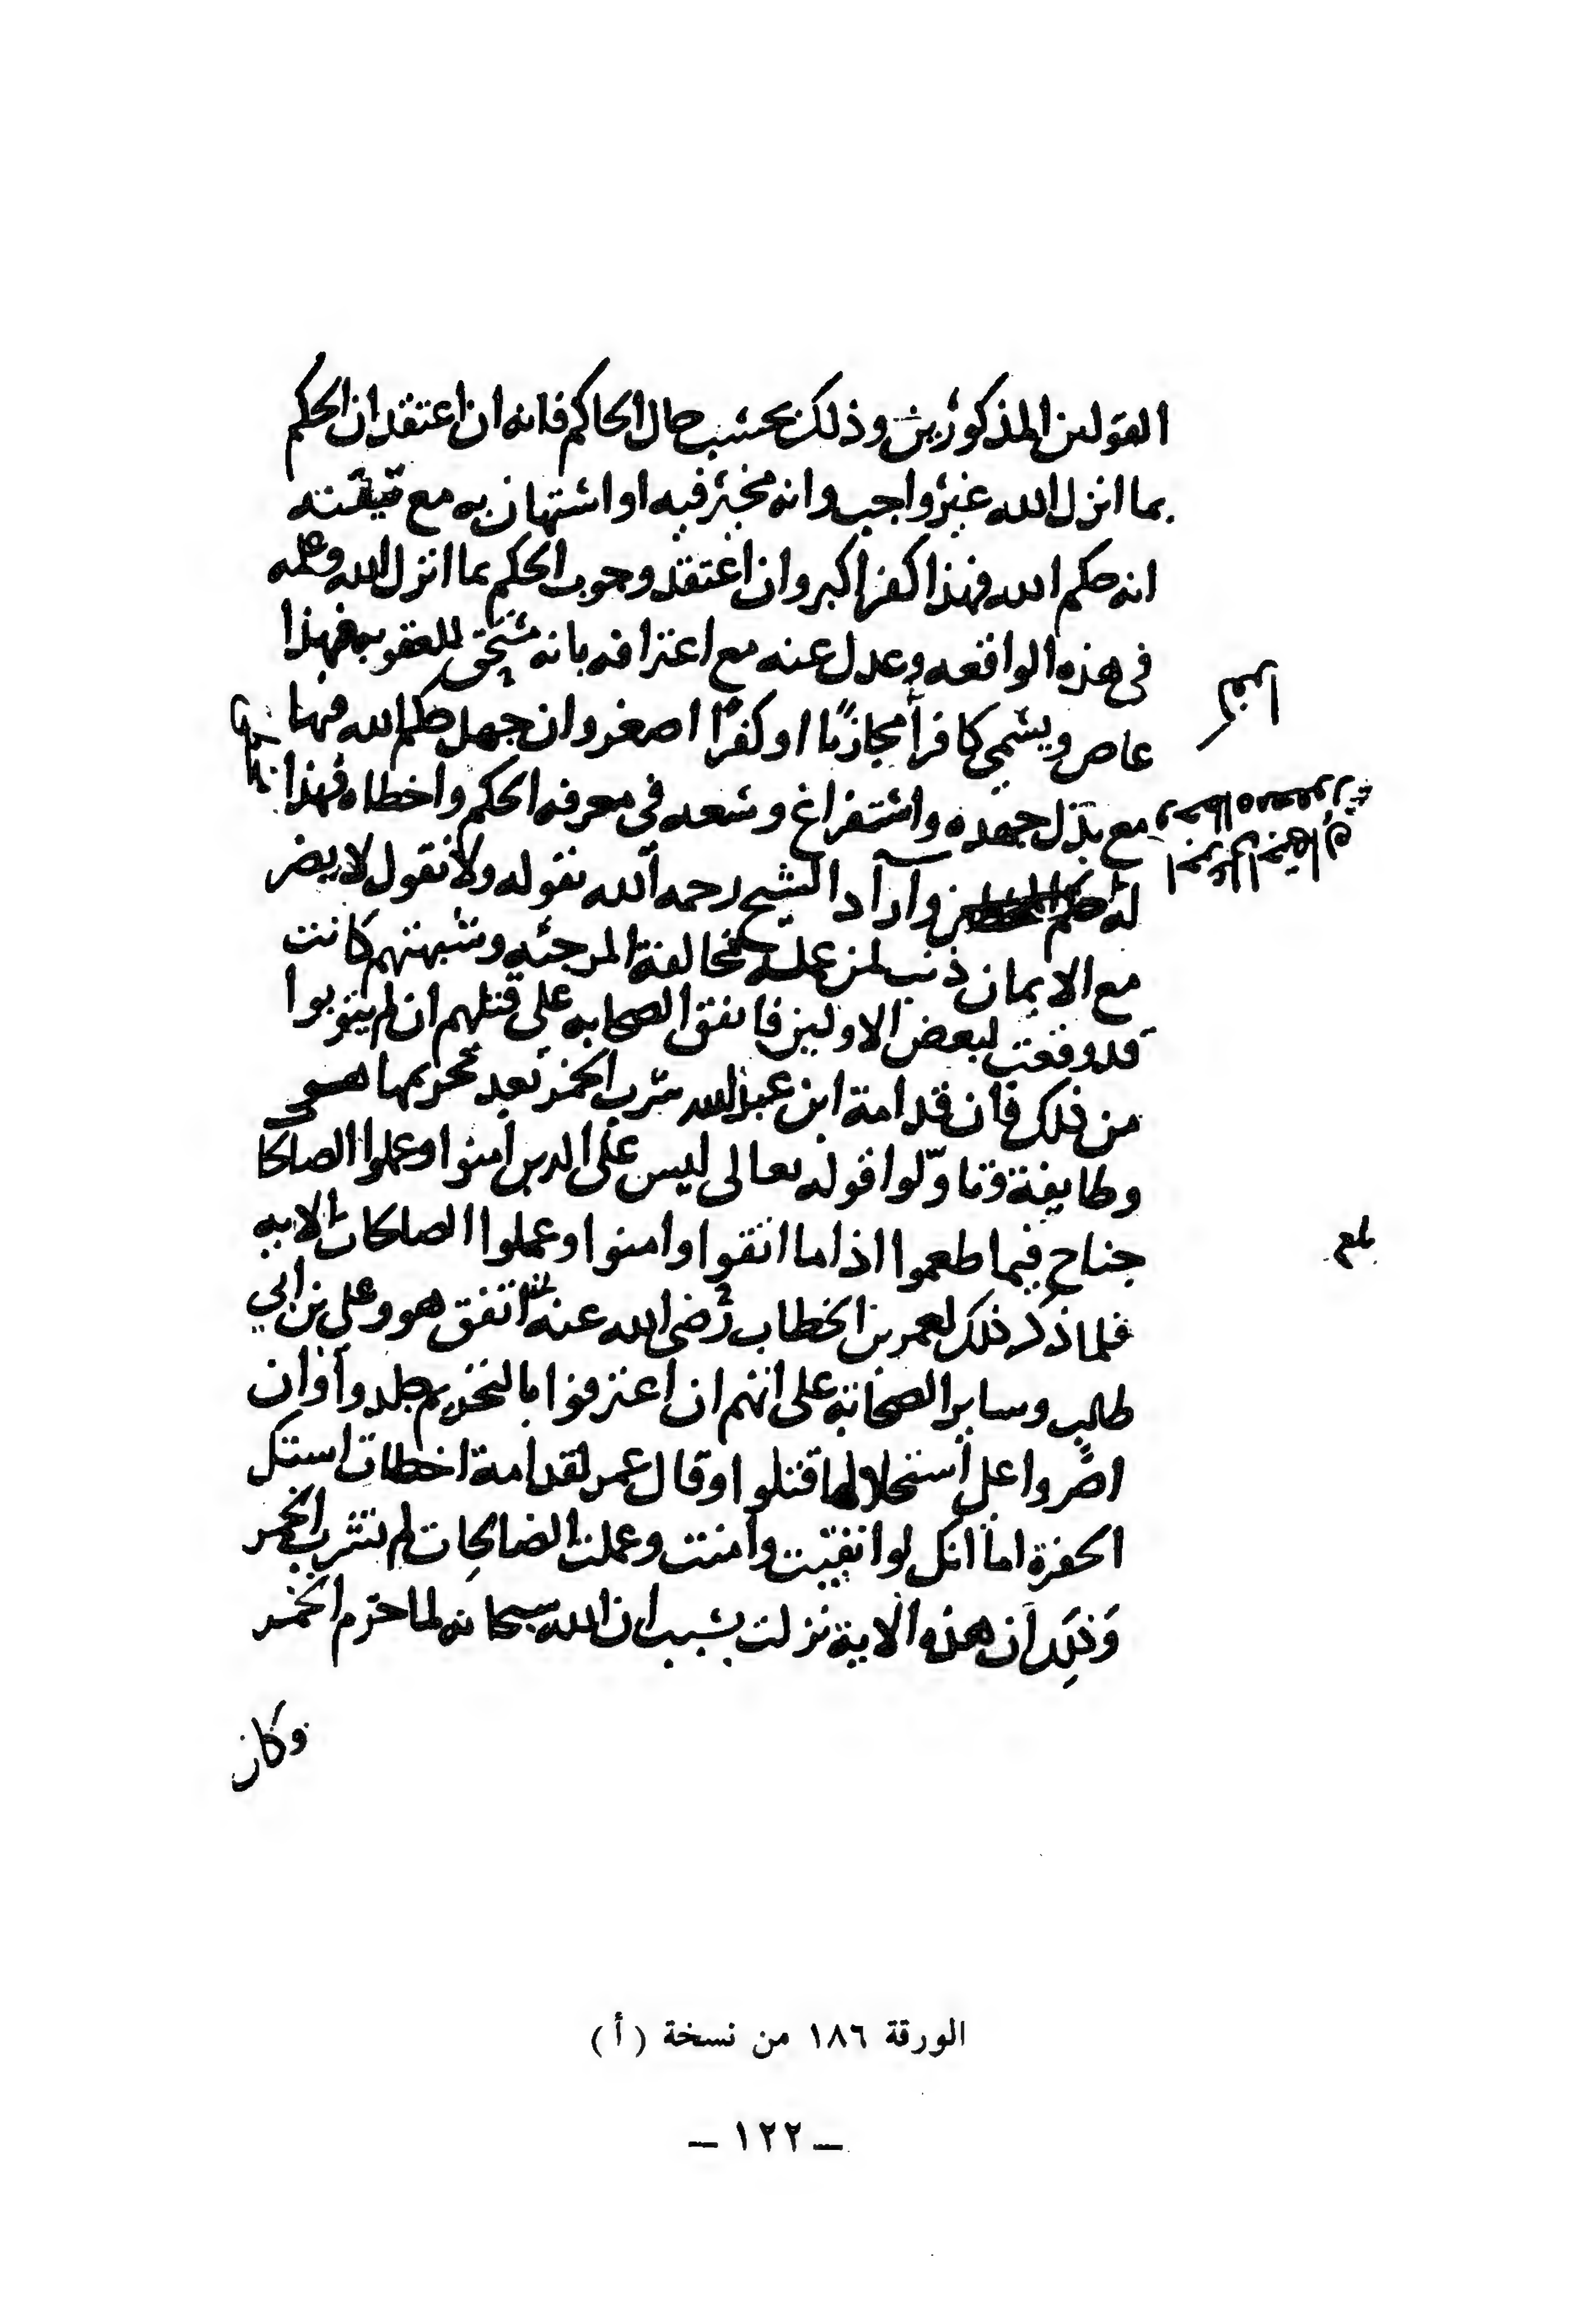 القولين المذكورين وذلك بحسب حال الحاكم فانه ان اعتقد ان الحكم
بما انزل الله غير واجب وانه مخير فيه او استهان به مع تيقنه
انه حكم الله فهذا كفر اكبر وان اعتقد وجوب الحكم بما انزل الله وعلمه
في هذه الواقعه وعدل عنه مع اعترافه بانه مستحق للعقوبه فهذا
عاص ويسمى كافرا مجازيا او كفرا اصغر وان جهل حكم الله فيها
مع بذل جهده واستفراغ وسعه في معرفه الحكم واخطاه فهذا
له حكم وآراد الشيخ رحمه الله بقوله ولا نقول لا يضر
مع الايمان ذنب لمن عمله مخالفة المرجئه وشبهتهم كانت
قد وقعت لبعض الاولين فاتفق الصحابه على قتلهم ان لم يتوبوا
من ذلك فان قدامة ابن عبدالله شرب الخمر بعد تحريمها هو
وطايفة وتاوّلوا قوله تعالى ليس على الدين آمنوا وعملوا الصالحا
جناح فيما طعموا اذا ما اتقوا وامنوا وعملوا الصالحات الايه
فلما ذكر ذلك لعمر بن الخطاب رضي الله عنه اتفق هو وعلي بن ابي
طالب وساير الصحابة على انهم ان اعترفوا بالتحريم جلدوا وان
اصروا على استحلالها قتلوا وقال عمر لقدامة اخطات استك
الحفرة اما انك لو اتقيت وآمنت وعملت الصالحات لم تشرب الخمر
وذلك ان هذه الاية نزلت بسبب ان الله سبحانه لما حرم الخمر
وكان
الورقة ١٨٦ من نسخة (أ)
— ١٢٢ —